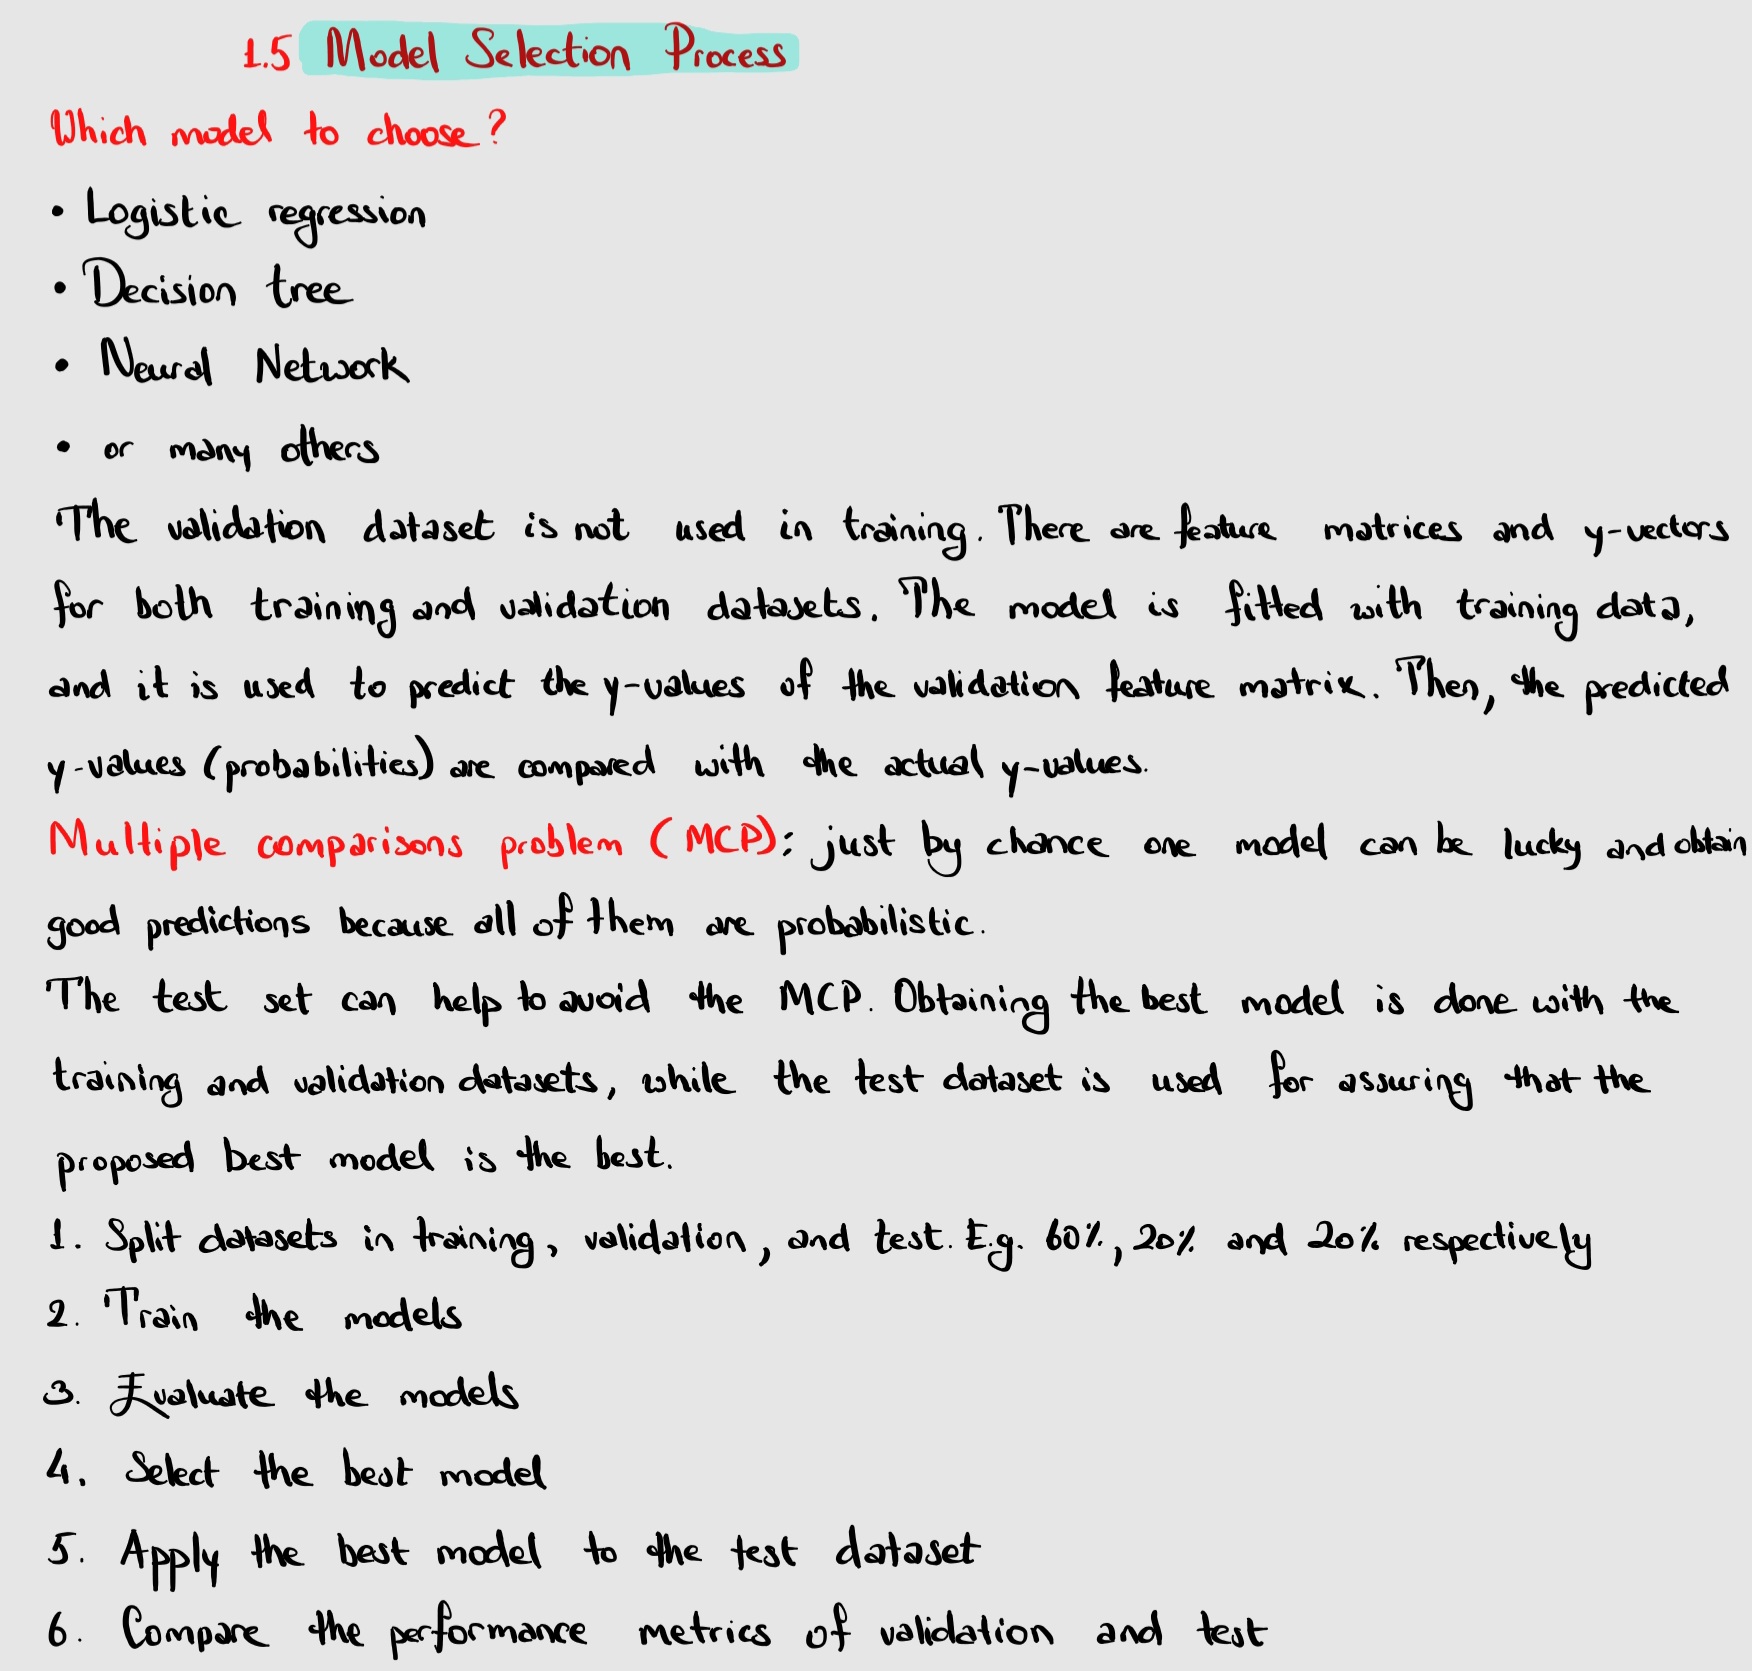 1.5 Model Selection Process
Which model to choose?
• Logistic regression
• Decision tree
• Neural Network
• or many others
The validation dataset is not used in training. There are feature matrices and y-vectors
for both training and validation datasets. The model is fitted with training data,
and it is used to predict the y-values of the validation feature matrix. Then, the predicted
y-values (probabilities) are compared with the actual y-values.
Multiple comparisons problem (MCP): just by chance one model can be lucky and obtain
good predictions because all of them are probabilistic.
The test set can help to avoid the MCP. Obtaining the best model is done with the
training and validation datasets, while the test dataset is used for assuring that the
proposed best model is the best.
1. Split datasets in training, validation, and test. E.g. 60%, 20% and 20% respectively
2. Train the models
3. Evaluate the models
4. Select the best model
5. Apply the best model to the test dataset
6. Compare the performance metrics of validation and test